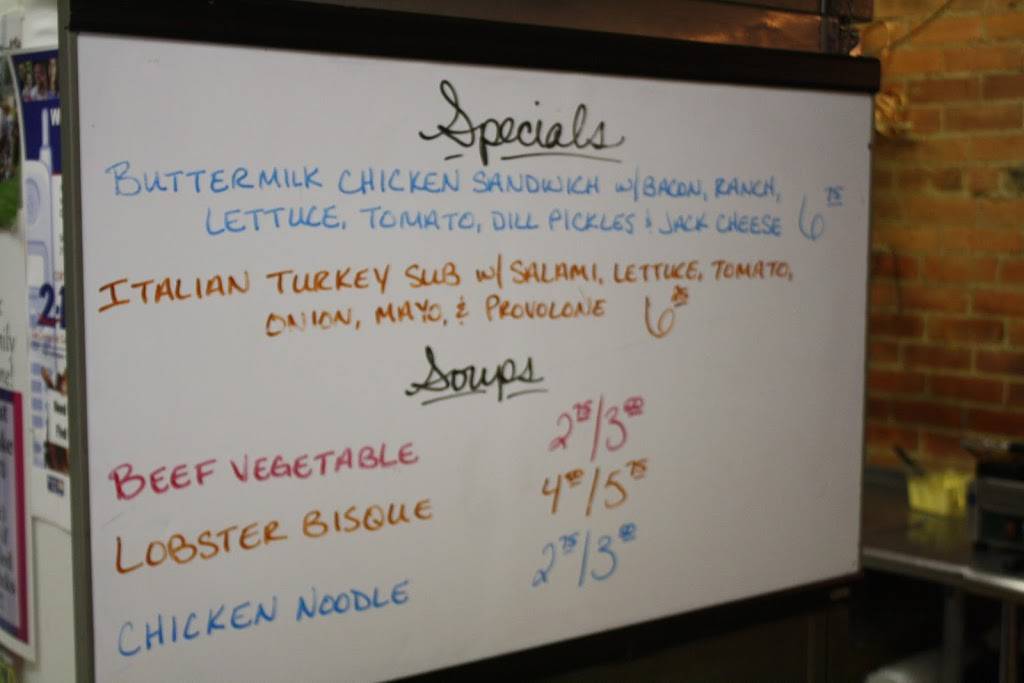 Specials
BUTTERMILK CHICKEN SANDWICH W/BACON, RANCH,
LETTUCE, TOMATO, DILL PICKLES & JACK CHEESE 6 75
ITALIAN TURKEY SUB W/ SALAMI, LETTUCE, TOMATO,
ONION, MAYO, & PROVOLONE 6
Soups
BEEF VEGETABLE 2 75/3
LOBSTER BISQUE 4 /5 75
CHICKEN NOODLE 2 75/3